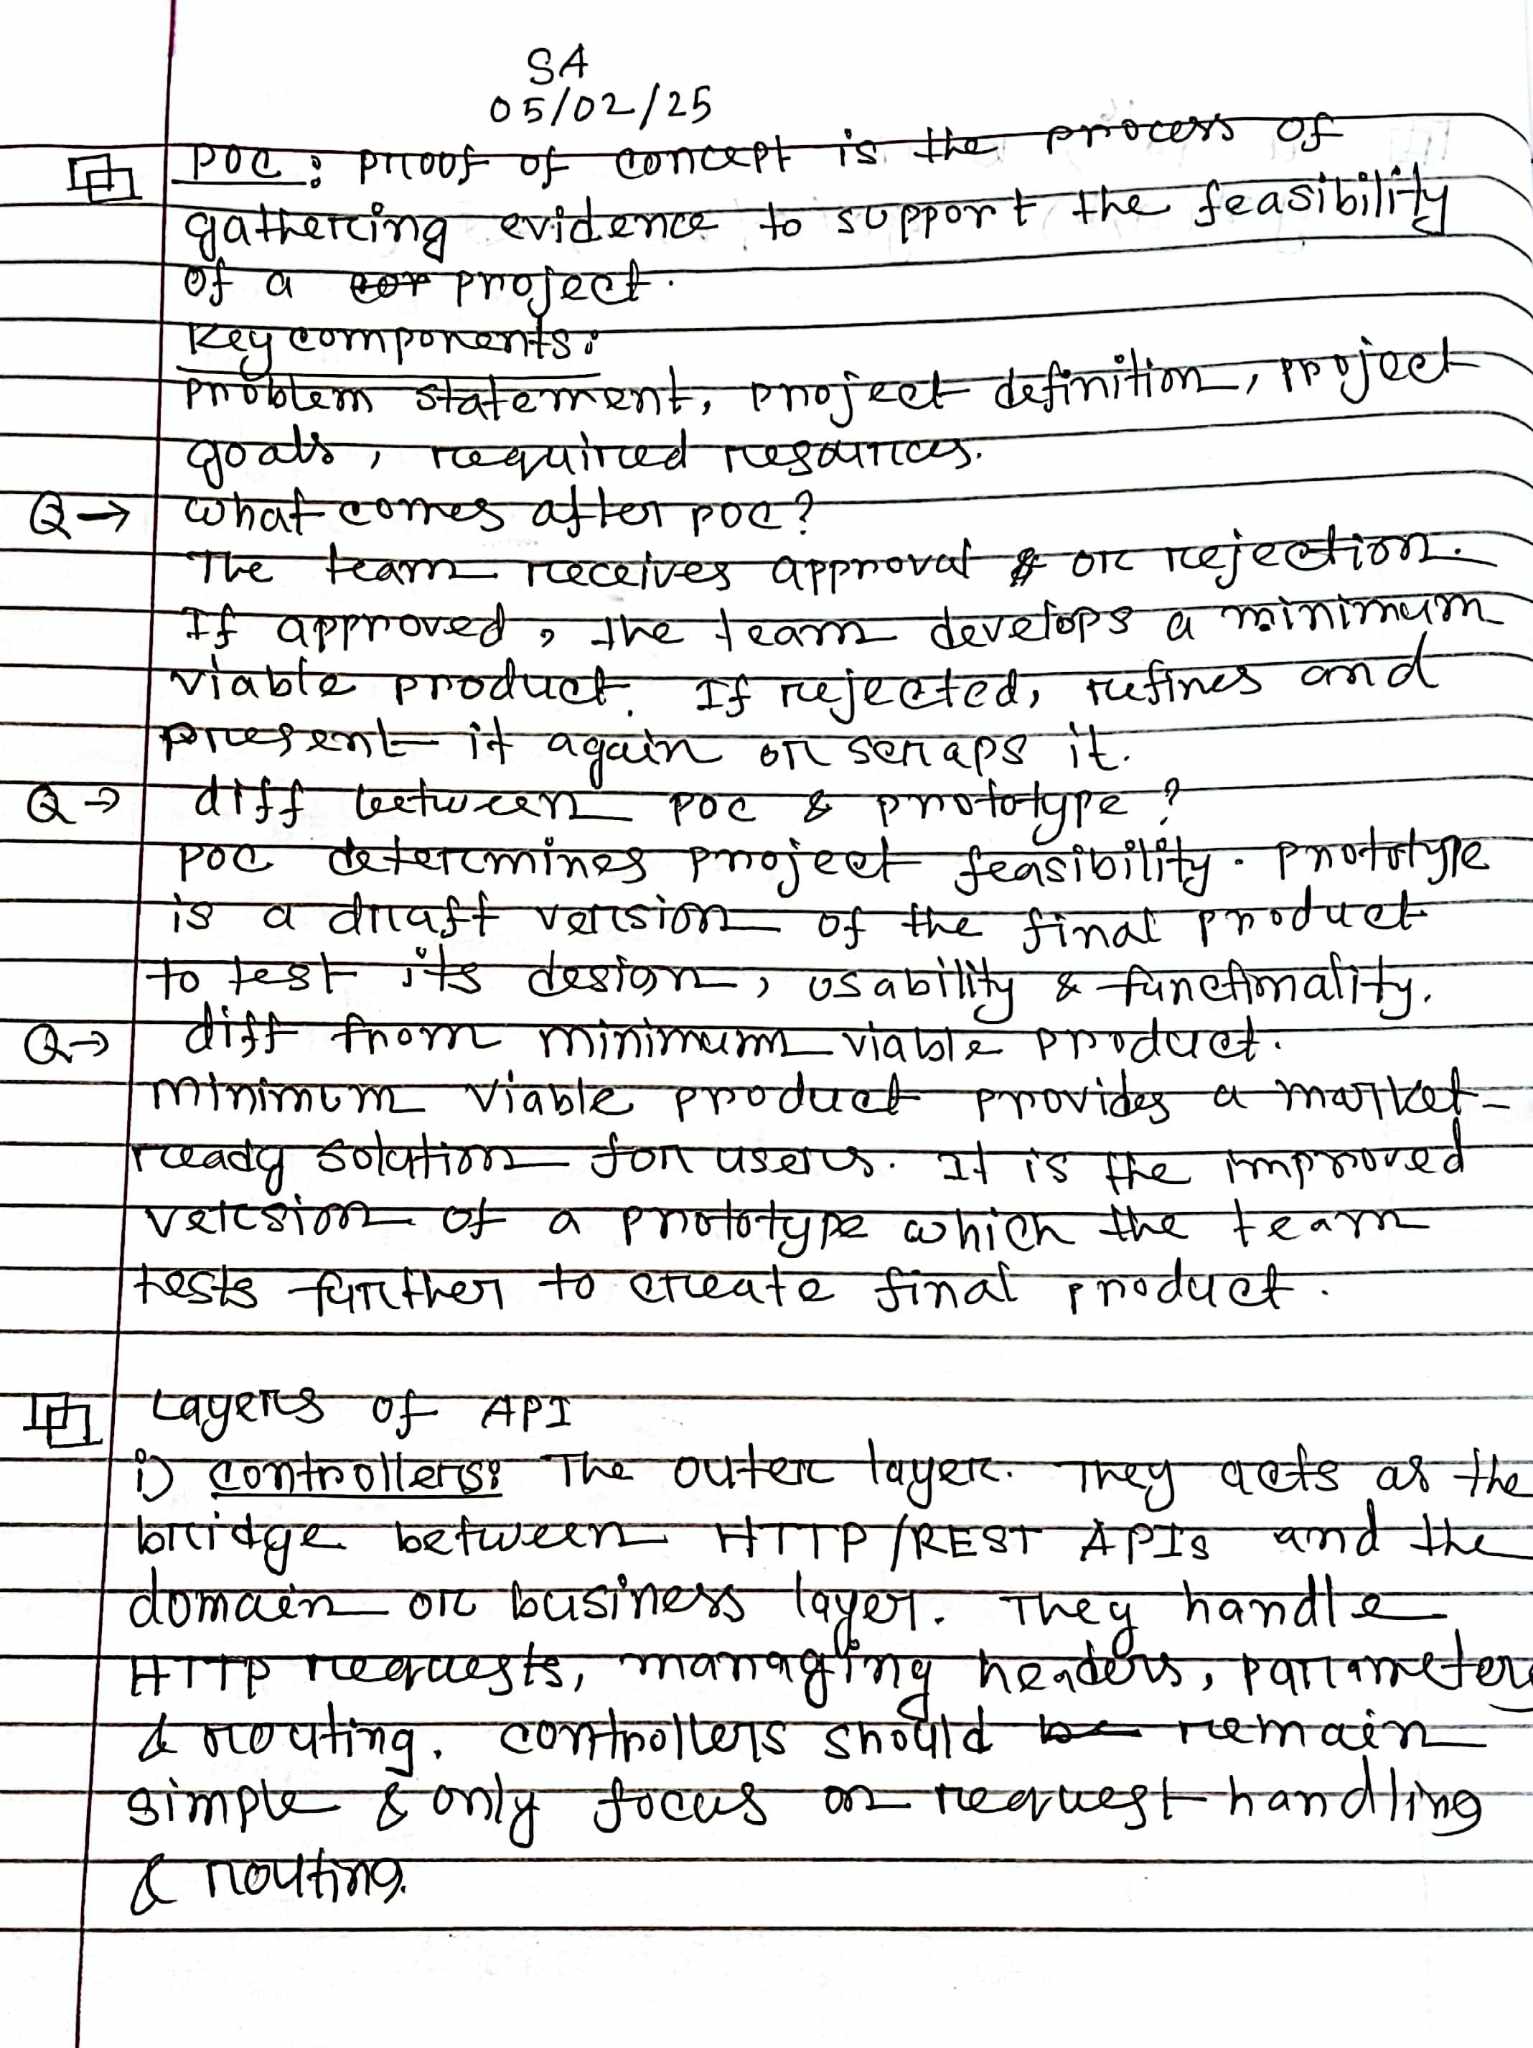 SA
05/02/25
POC : Proof of concept is the process of
gathering evidence to support the feasibility
of a project.
Key components:
Problem statement, project definition, project
goals, required resources.
Q→ What comes after POC?
The team receives approval or rejection.
If approved, the team develops a minimum
viable product. If rejected, refines and
present it again or scraps it.
Q→ diff between POC & prototype?
POC determines project feasibility. Prototype
is a draft version of the final product
to test its design, usability & functionality.
Q→ diff from minimum viable product.
Minimum viable product provides a market-
ready solution for users. It is the improved
version of a prototype which the team
tests further to create final product.
Layers of API
i) Controllers: The outer layer. They acts as the
bridge between HTTP/REST APIs and the
domain or business layer. They handle
HTTP requests, managing headers, parameters
& routing. Controllers should remain
simple & only focus on request handling
& routing.